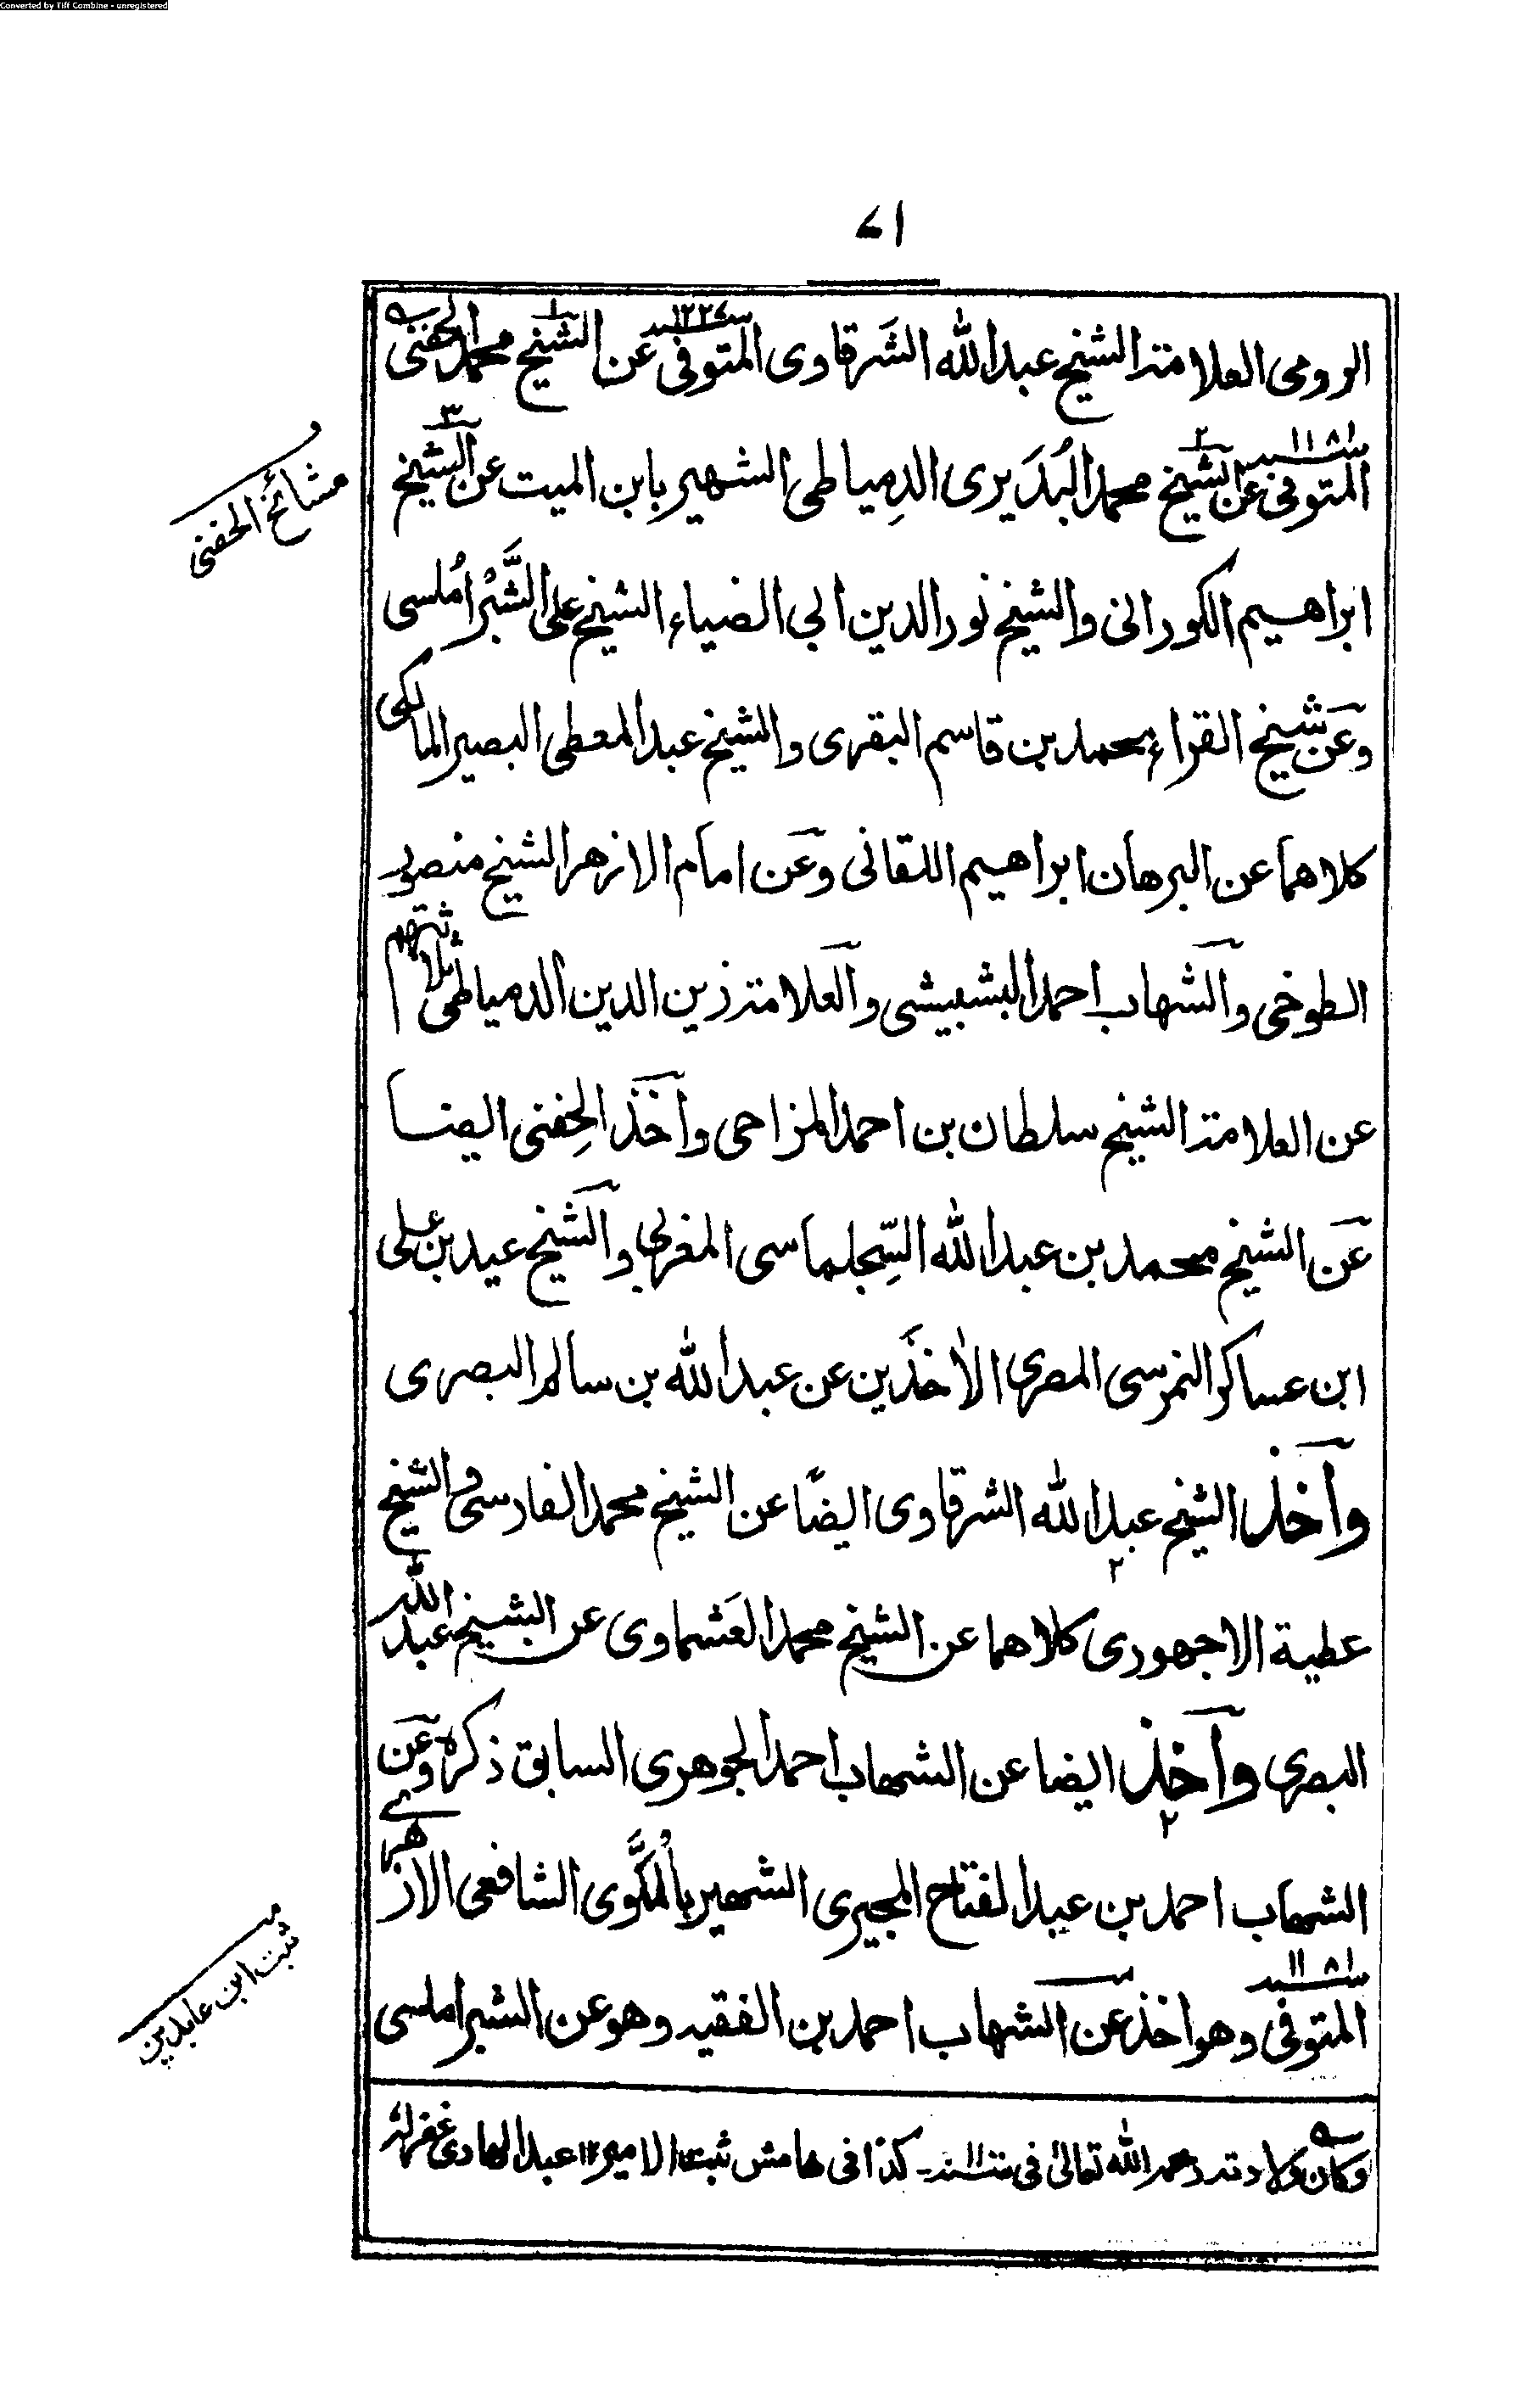 Converted by Tiff Combine - unregistered
٧١
الرومی العلامۃ الشیخ عبداللہ الشَرقاوی المتوفی سنہ ١٢٢٧ عن الشیخ محمد الحفنی
المتوفی سنہ ١١٨١ عن الشیخ محمد البُدَیری الدِمیاطی الشهیر بابن المیت عن الشیخ
ابراهیم الکورانی والشیخ نور الدین ابی الضیاء الشیخ علی الشَّبْرامُلسی
وعن شیخ القراء محمد بن قاسم البقری والشیخ عبد المعطی البصیر المالکی
کلاهما عن البرهان ابراهیم اللقانی وعن امام الازهر الشیخ منصور
الطوخی والشهاب احمد البشبیشی والعلامۃ زین الدین الدمیاطی ثلاثتهم
عن العلامۃ الشیخ سلطان بن احمد المزاحی وأخذ الحِفنی ایضا
عن الشیخ محمد بن عبداللہ السِّجلماسی المغربی والشیخ عید بن علی
ابن عساکر النمرسی المصری الاٰخذَین عن عبداللہ بن سالم البصری
وأخذ الشیخ عبداللہ الشرقاوی ایضًا عن الشیخ محمد الفارسی والشیخ
عطیة الاجهوری کلاهما عن الشیخ محمد العَشماوی عن الشیخ عبداللہ
البصری وأخذ ایضا عن الشهاب احمد الجوهری السابق ذکرہ وعن
الشهاب احمد بن عبد الفتاح المجیری الشهیر بالمُلَّوی الشافعی الازهری
المتوفی سنہ ١١٨١ وهو اخذ عن الشهاب احمد بن الفقیہ وهو عن الشبراملسی
وکان ولادتہ رحمہ اللہ تعالیٰ فی سنہ کذا فی هامش ثبت الامیر ١٢ عبد الهادی غفرلہ
مشائخ الحفنی
ثبت ابن عابدین